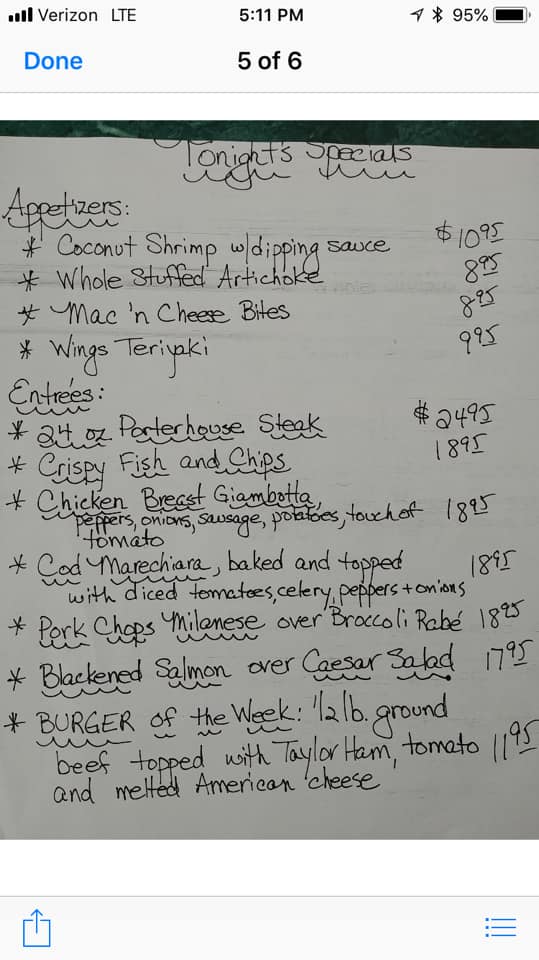 Verizon LTE 5:11 PM 95%
Done 5 of 6
Tonight's Specials
Appetizers:
* Coconut Shrimp w/dipping sauce $10 95
* Whole Stuffed Artichoke 8 95
* Mac 'n Cheese Bites 8 95
* Wings Teriyaki 9 95
Entrées:
* 24 oz Porterhouse Steak $24 95
* Crispy Fish and Chips 18 95
* Chicken Breast Giambotta,
peppers, onions, sausage, potatoes, touch of 18 95
tomato
* Cod Marechiara, baked and topped 18 95
with diced tomatoes, celery, peppers + onions
* Pork Chops Milanese over Broccoli Rabé 18 95
* Blackened Salmon over Caesar Salad 17 95
* BURGER of the Week: 1/2 lb. ground
beef topped with Taylor Ham, tomato 11 95
and melted American cheese